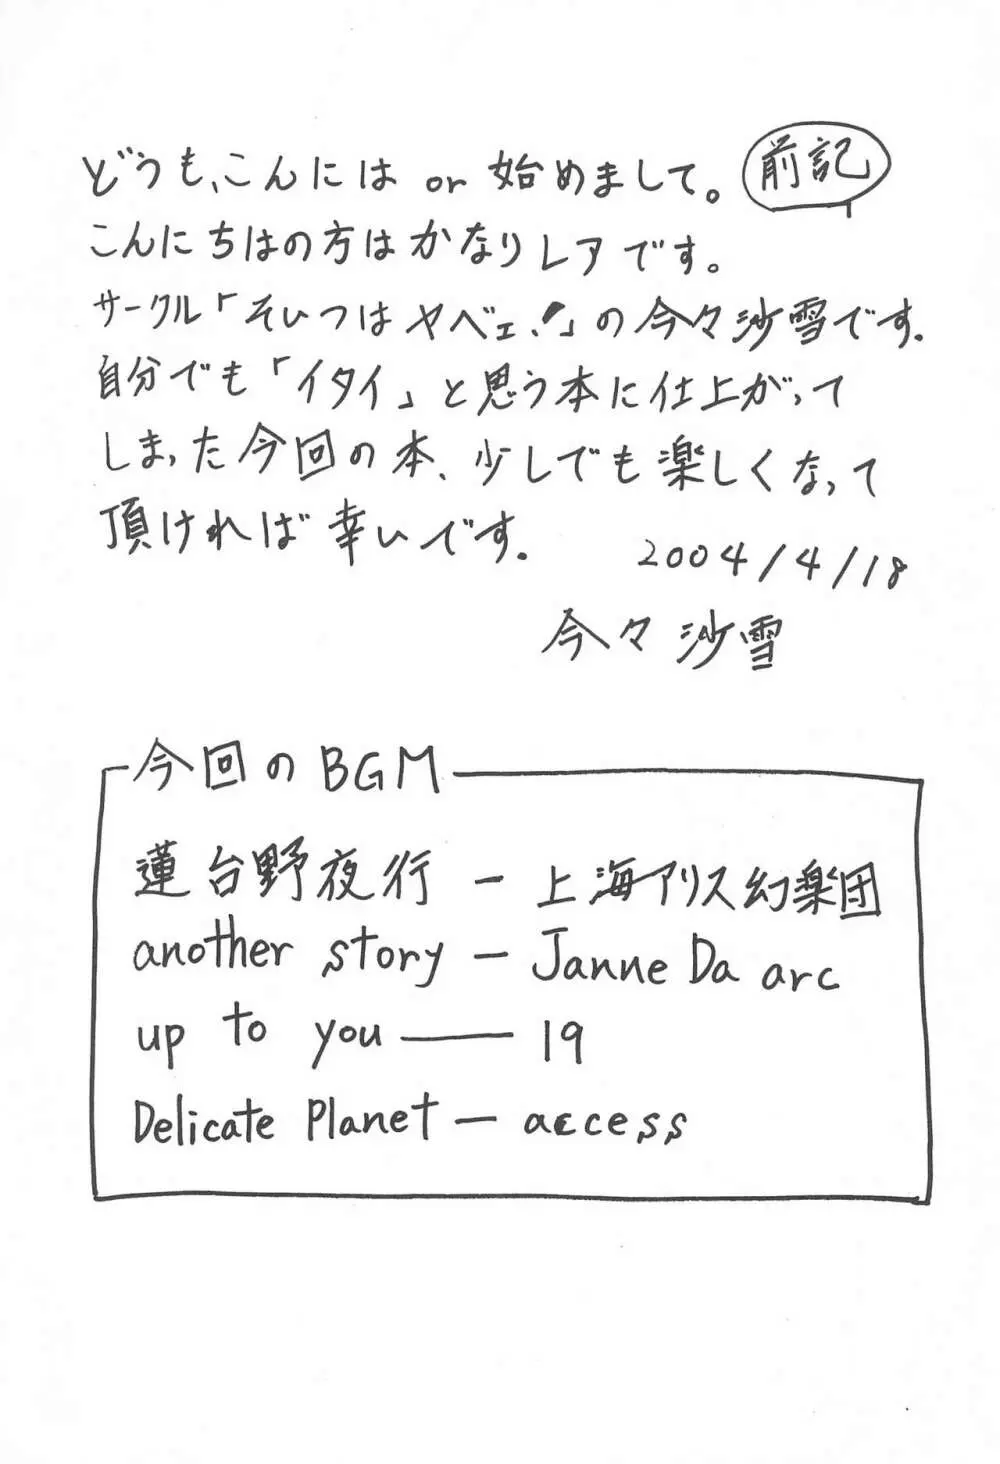 前記
どうも、こんにはor始めまして。
こんにちはの方はかなりレアです。
サークル「そいつはヤベェ!」の今々沙雪です。
自分でも「イタイ」と思う本に仕上がって
しまった今回の本、少しでも楽しくなって
頂ければ幸いです。
2004/4/18
今々沙雪
今回のBGM
蓮台野夜行 - 上海アリス幻楽団
another story - Janne Da arc
up to you — 19
Delicate Planet - access